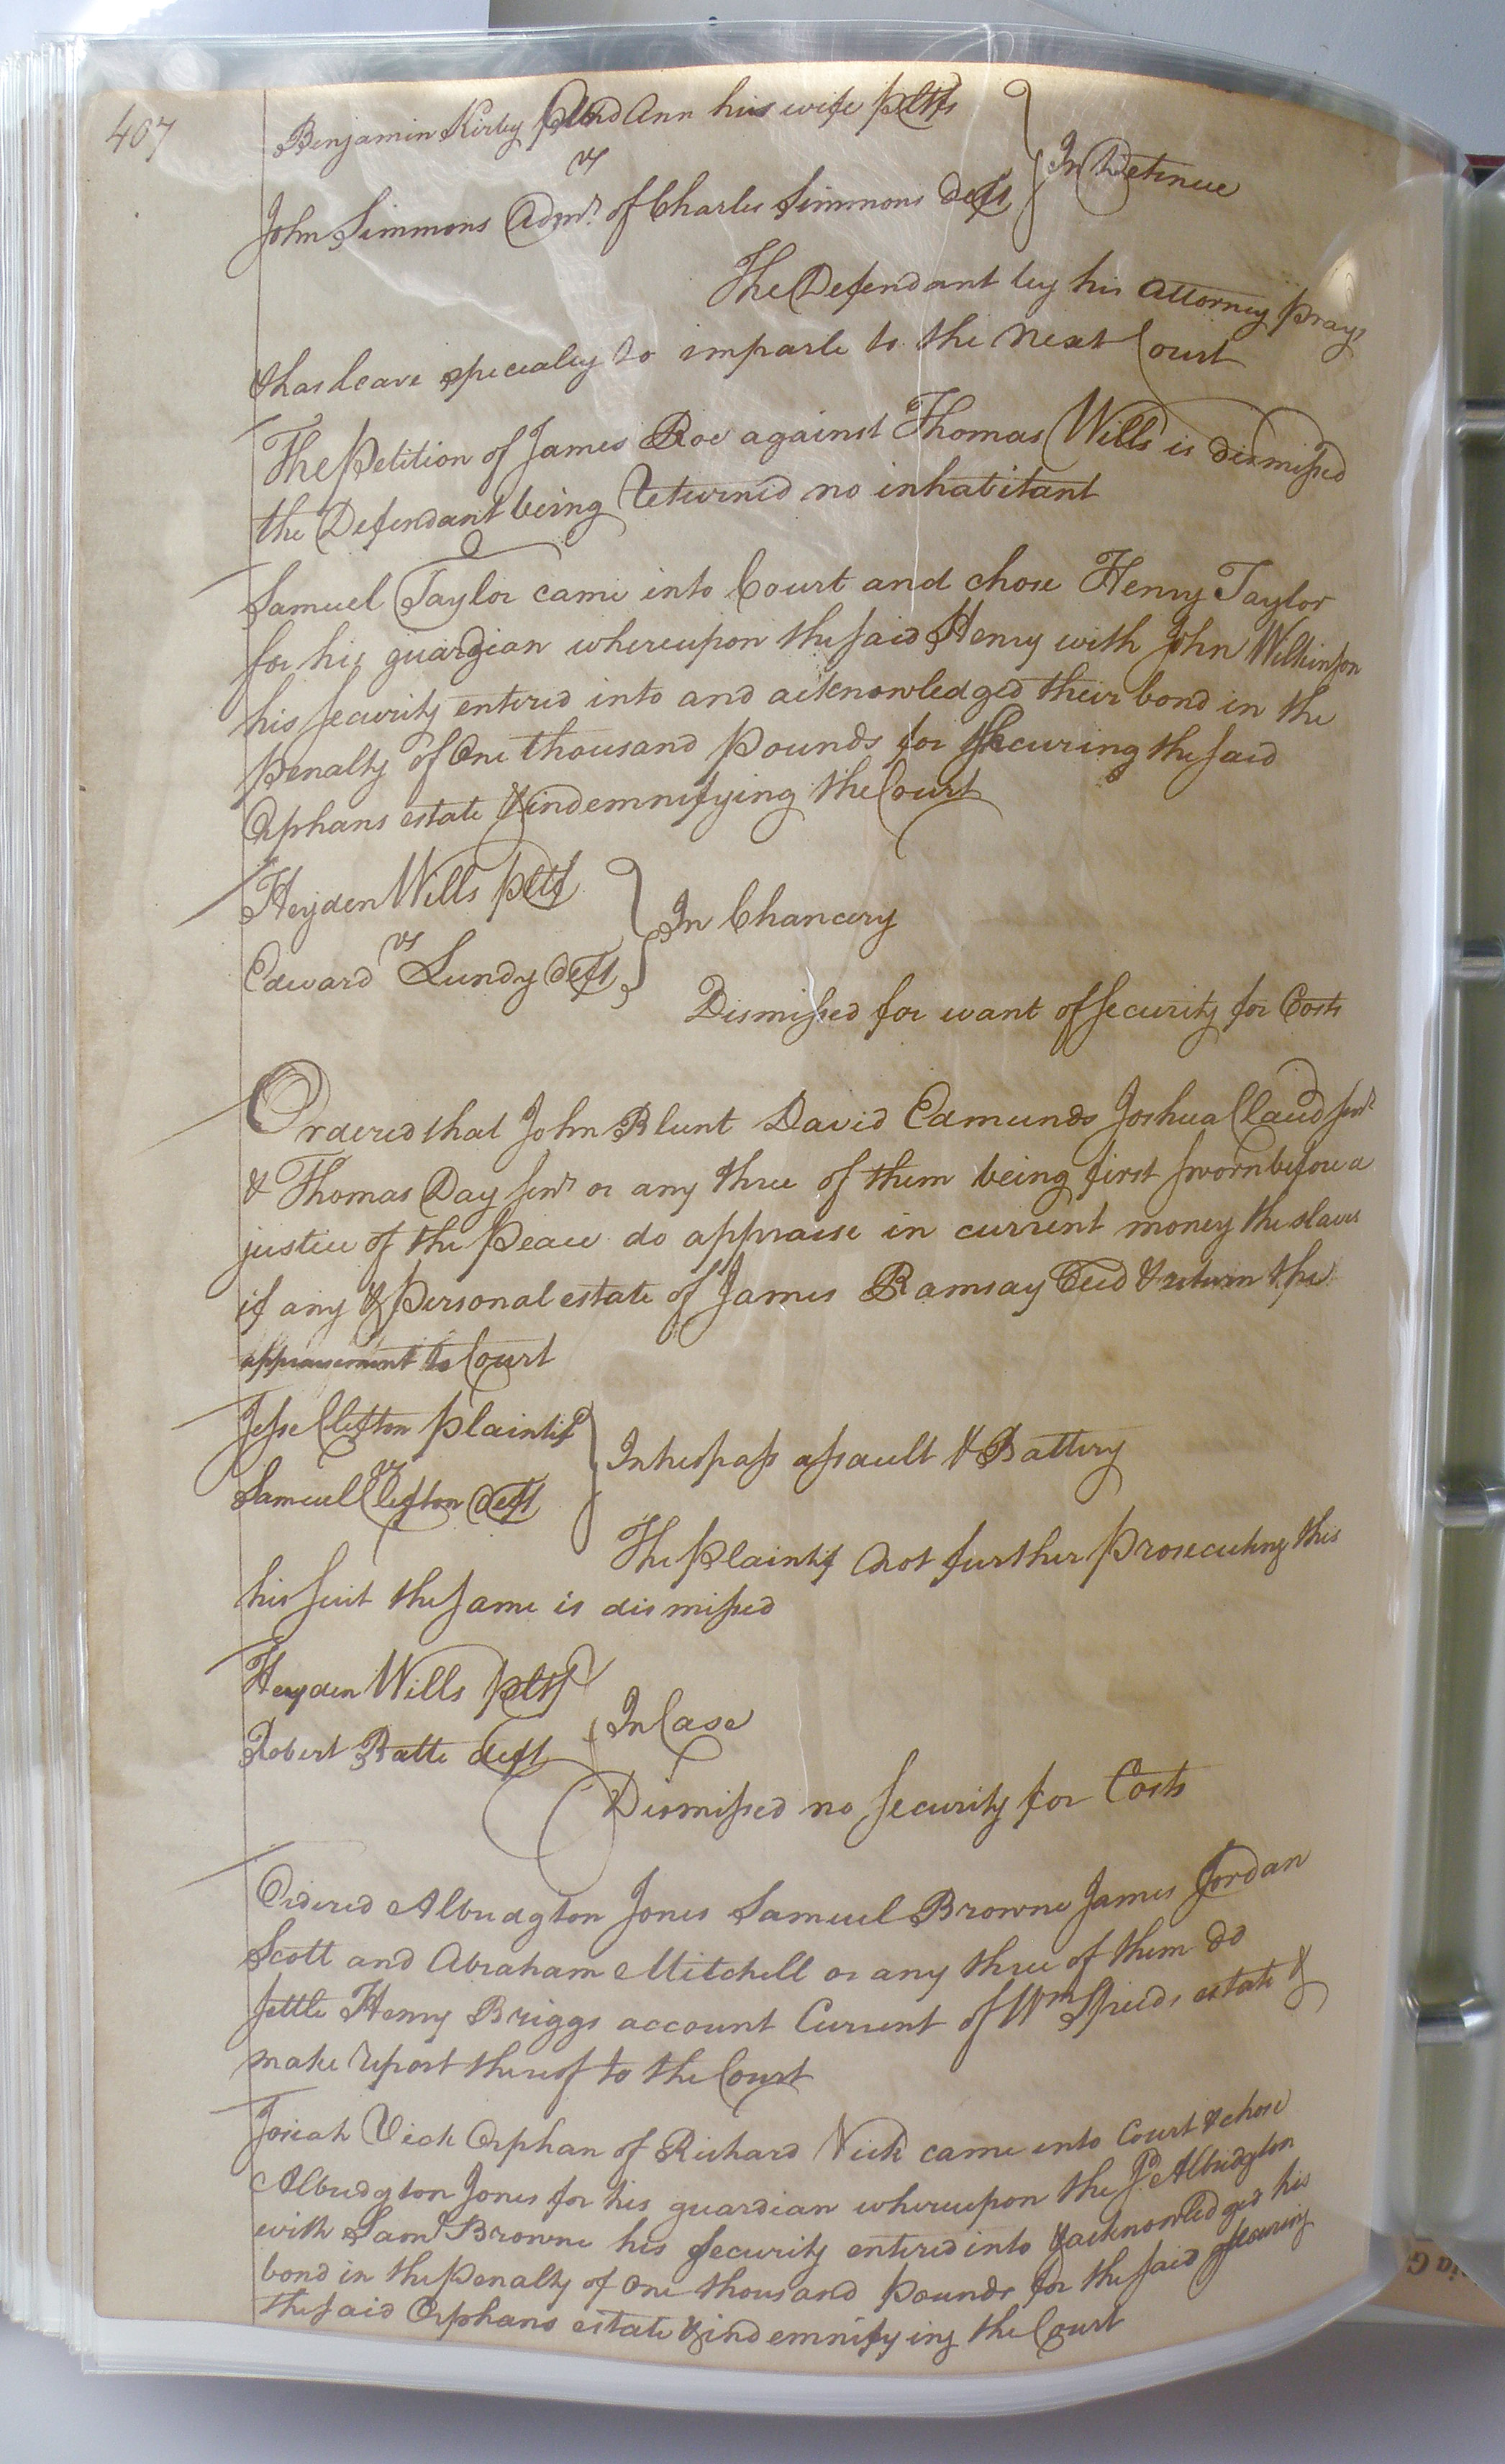 407
Benjamin Kirby and Ann his wife pltfs
vs
John Simmons Admr. of Charles Simmons Deft
In Detinue
The Defendant by his Attorney prays
& has leave specialy to imparle to the Next Court
The Petition of James Roe against Thomas Wills is dismissed
the Defendant being returned no inhabitant
Samuel Taylor came into Court and chose Henry Taylor
for his guardian whereupon the said Henry with John Wilkinson
his security entered into and acknowledged their bond in the
penalty of One thousand Pounds for securing the said
Orphans estate & indemnifying the Court
Heyden Wills pltf
vs
Edward Lundy deft
In Chancery
Dismissed for want of security for Costs
Ordered that John Blunt David Edmunds Joshua Claud senr
& Thomas Day senr or any three of them being first sworn before a
justice of the Peace do appraise in current money the slaves
if any & Personal estate of James Ramsay Decd & return the
appraisement to Court
Jesse Clifton plaintif
vs
Samuel Clifton deft
In trespass assault & Battery
The Plaintif not further Prosecuting this
his suit the same is dismissed
Heyden Wills pltf
Robert Batte deft
In Case
Dismissed no security for Costs
Ordered Albridgton Jones Samuel Browne James Jordan
Scott and Abraham Mitchell or any three of them do
settle Henry Briggs account Current of Wm Speeds estate &
make report thereof to the Court
Josiah Vick Orphan of Richard Vick came into Court & chose
Albridgton Jones for his guardian whereupon the sd. Albridgton
with Saml Browne his security entered into & acknowledged his
bond in the Penalty of One thousand Pounds for the said securing
the said Orphans estate & indemnifying the Court